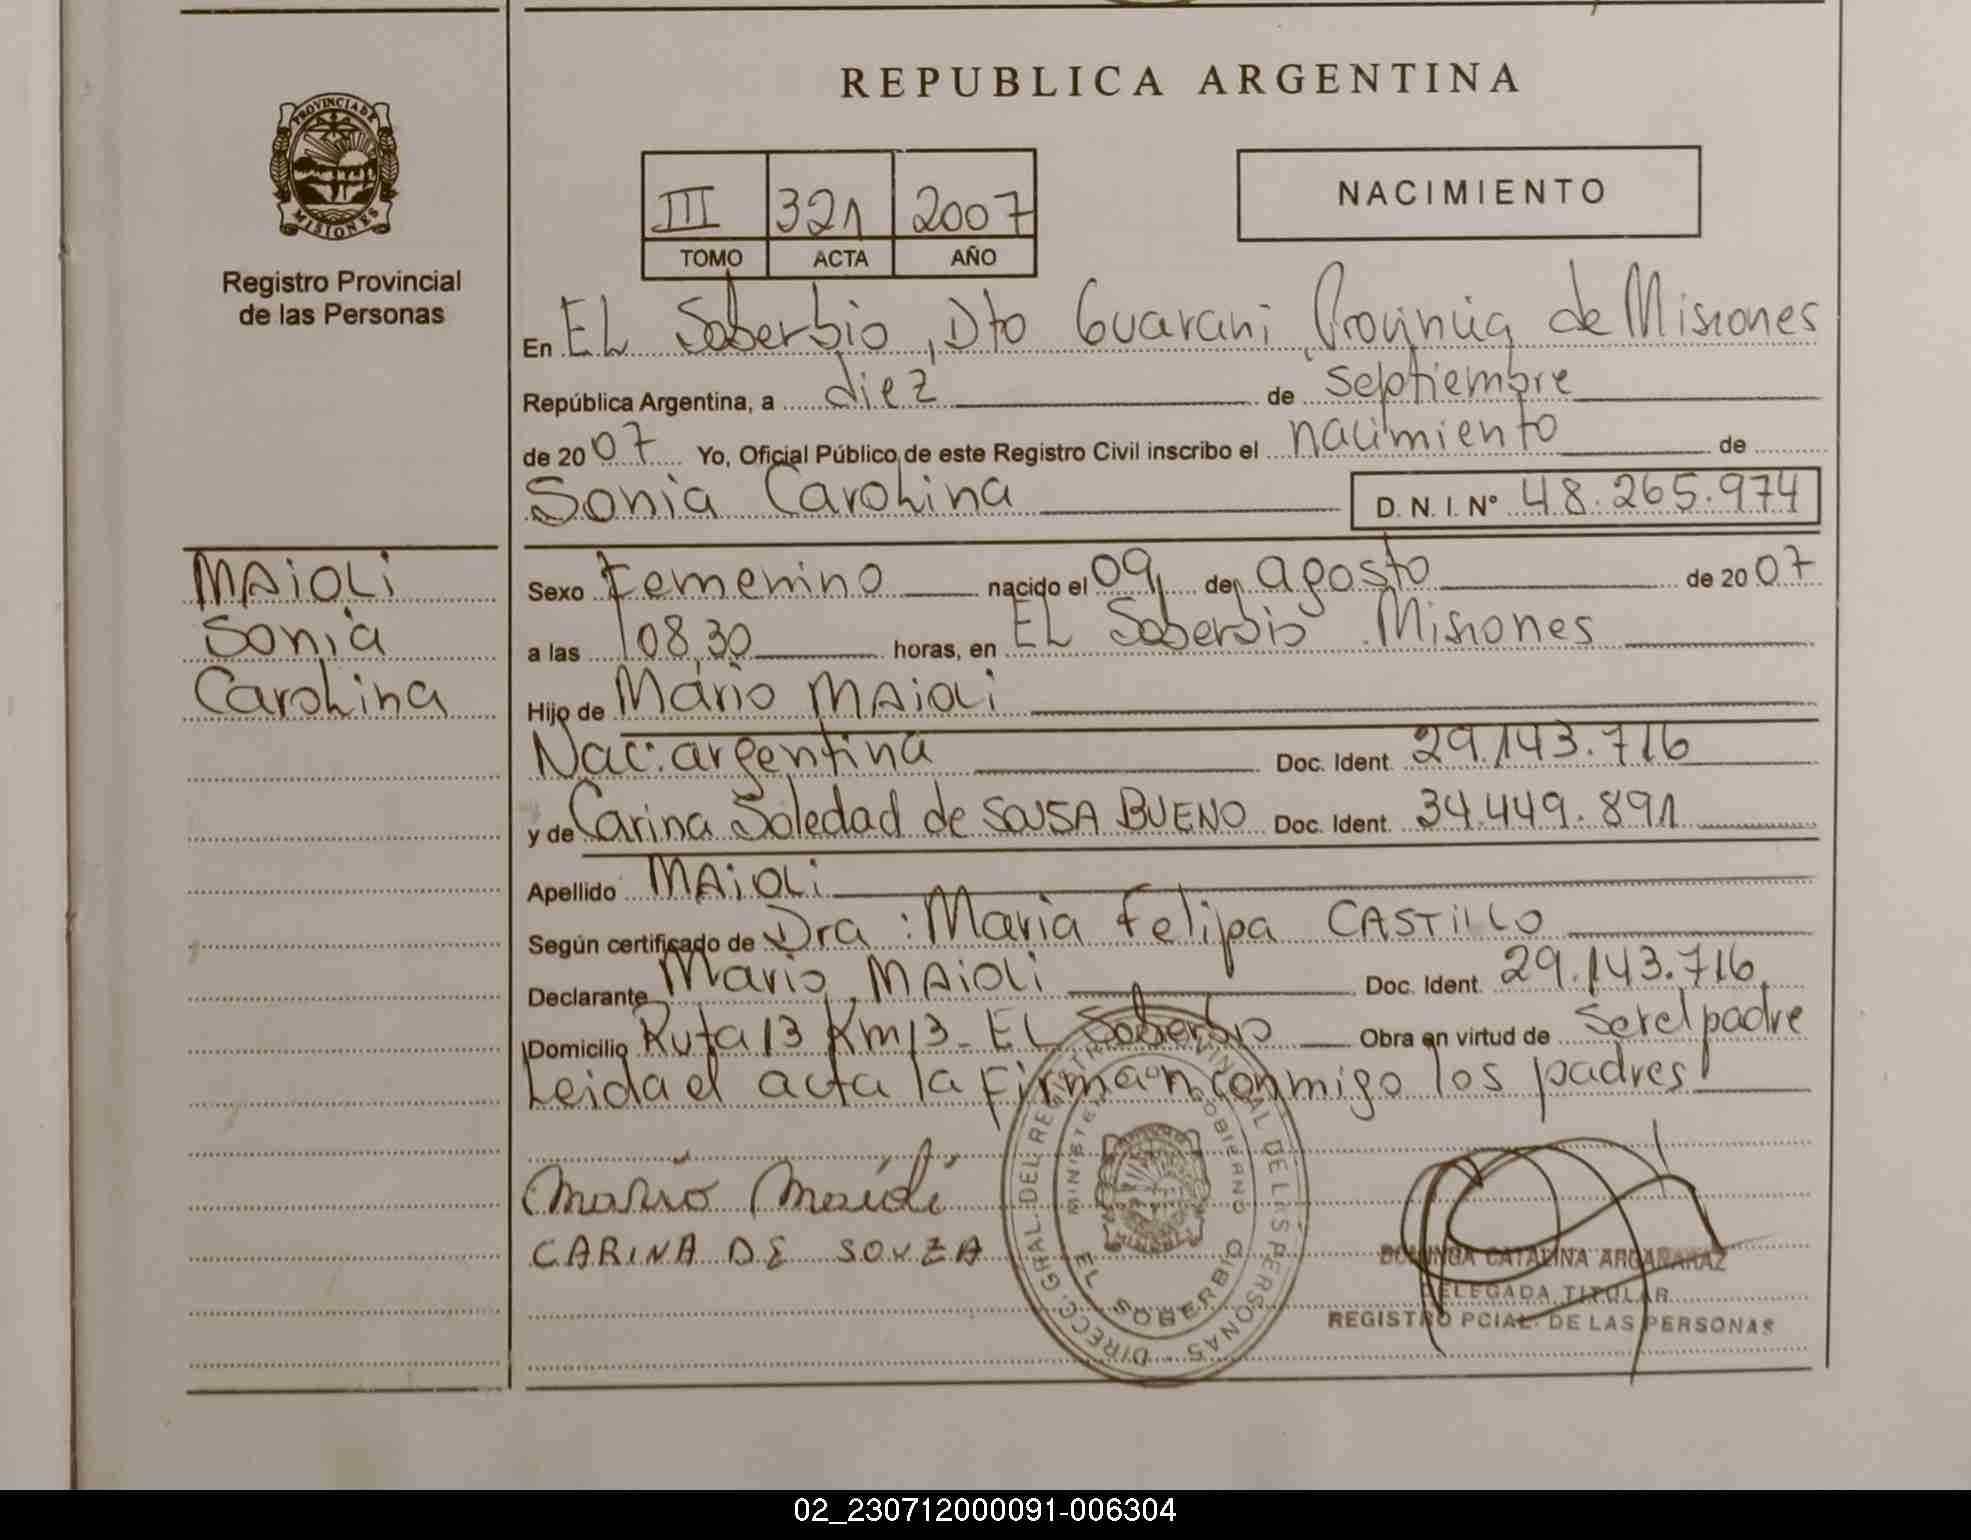 REPUBLICA ARGENTINA
PROVINCIA DE MISIONES
Registro Provincial
de las Personas
III 321 2007
TOMO ACTA AÑO
NACIMIENTO
En EL Soberbio, Dto Guarani, Provincia de Misiones
República Argentina, a diez de septiembre
de 2007 Yo, Oficial Público de este Registro Civil inscribo el nacimiento de
Sonia Carolina D. N. I. N° 48.265.974
MAiOLi
Sonia
Carolina
Sexo Femenino nacido el 09 de agosto de 2007
a las 08,30 horas, en EL Soberbio Misiones
Hijo de Mario MAiOLi
Nac: argentina Doc. Ident. 29.143.716
y de Carina Soledad de SOUSA BUENO Doc. Ident. 34.449.891
Apellido MAiOLi
Según certificado de Dra: Maria Felipa CASTiLLO
Declarante Mario MAiOLi Doc. Ident. 29.143.716
Domicilio Ruta 13 Km 13 - EL Soberbio Obra en virtud de ser el padre
Leida el acta la firman conmigo los padres
Mario Maioli
CARINA DE SOUZA
DIRECC. GRAL. DEL REGISTRO PROVINCIAL DE LAS PERSONAS
MINISTERIO GOBIERNO
EL SOBERBIO
DOMINGA CATALINA ARGAÑARAZ
DELEGADA TITULAR
REGISTRO PCIAL. DE LAS PERSONAS
02_230712000091-006304